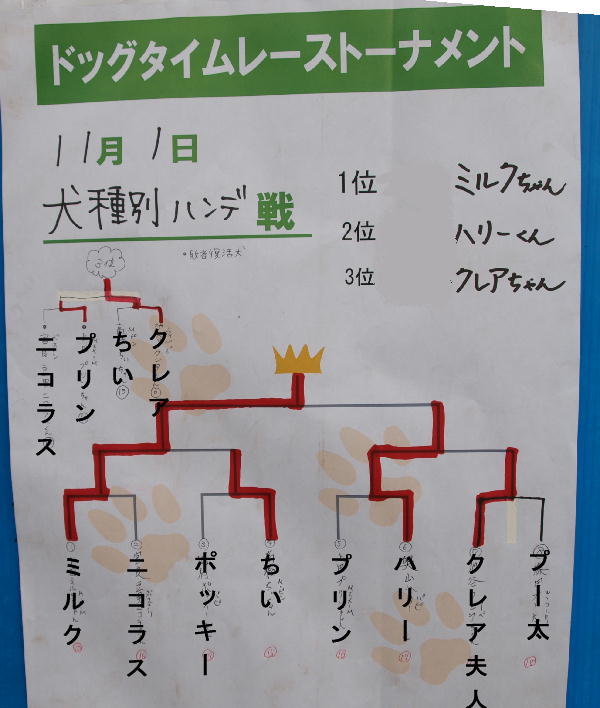 ドッグタイムレーストーナメント
11月1日
犬種別ハンデ戦
1位 ミルクちゃん
2位 ハリーくん
3位 クレアちゃん
3位
ニコラス
プリン
ちい
クレア
ミルク
ニコラス
ポッキー
ちい
プリン
ハリー
クレア夫人
プー太